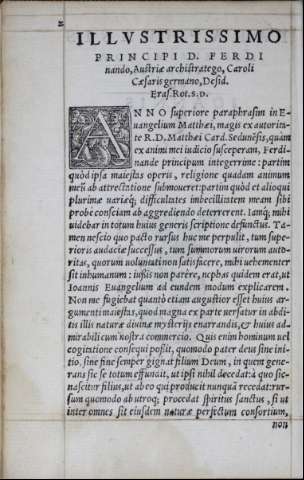 ILLVSTRISSIMO
PRINCIPI D. FERDI
nando, Austriæ archistratego, Caroli
Cæsaris germano, Desid.
Eras. Rot. S. D.
ANNO superiore paraphrasim in E-
uangelium Matthæi, magis ex autorita-
te R. D. Matthæi Card. Sedunensis, quàm
ex animi mei iudicio susceperam, Ferdi-
nande principum integerrime: partim
quòd ipsa maiestas operis, religione quadam animum
meũ ab attrectatione submoueret: partim quòd et alioqui
plurimæ variæq; difficultates imbecillitatem meam sibi
probe consciam ab aggrediendo deterrerent. Ianq; mihi
uidebar in totum huius generis scriptione defunctus. Ta-
men nescio quo pacto rursus huc me perpulit, tum supe-
rioris audaciæ successus, tum summorum uirorum auto-
ritas, quorum uoluntati non satisfacere, mihi uehementer
sit inhumanum: iussis non parêre, nephas quidem erat, ut
Ioannis Euangelium ad eundem modum explicarem.
Non me fugiebat quantò etiam augustior esset huius ar-
gumenti maiestas, quod magna ex parte uersatur in abdi-
tis illis naturæ diuinæ mysterijs enarrandis, & huius ad-
mirabili cum nostra commercio. Quis enim hominum uel
cogitatione consequi possit, quomodo pater deus sine ini-
tio, sine fine semper gignat filium Deum, in quem gene-
rans sic se totum effundit, ut ipsi nihil decedat: à quo sic
nascitur filius, ut ab eo qui producit nunquã recedat: rur-
sum quomodo ab utroq; procedat spiritus sanctus, si ut
inter omnes sit eiusdem naturæ perfectum consortium,
non